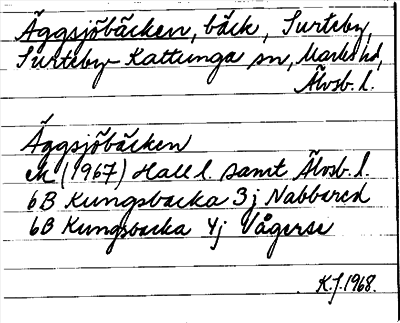 Äggsjöbäcken, bäck, Surteby,
Surteby-Kattunga sn, Marks hd,
Älvsb. l.
Äggsjöbäcken
M (1967) Hall l. samt Älvsb. l.
6B Kungsbacka 3j Nabbared
6B Kungsbacka 4j Vågerse
K.J. 1968.